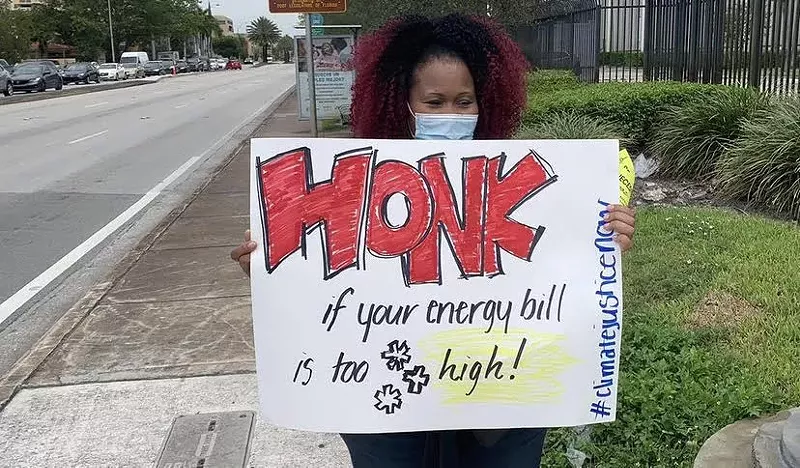 HONK
if your energy bill
is too high!
#climatejusticenow